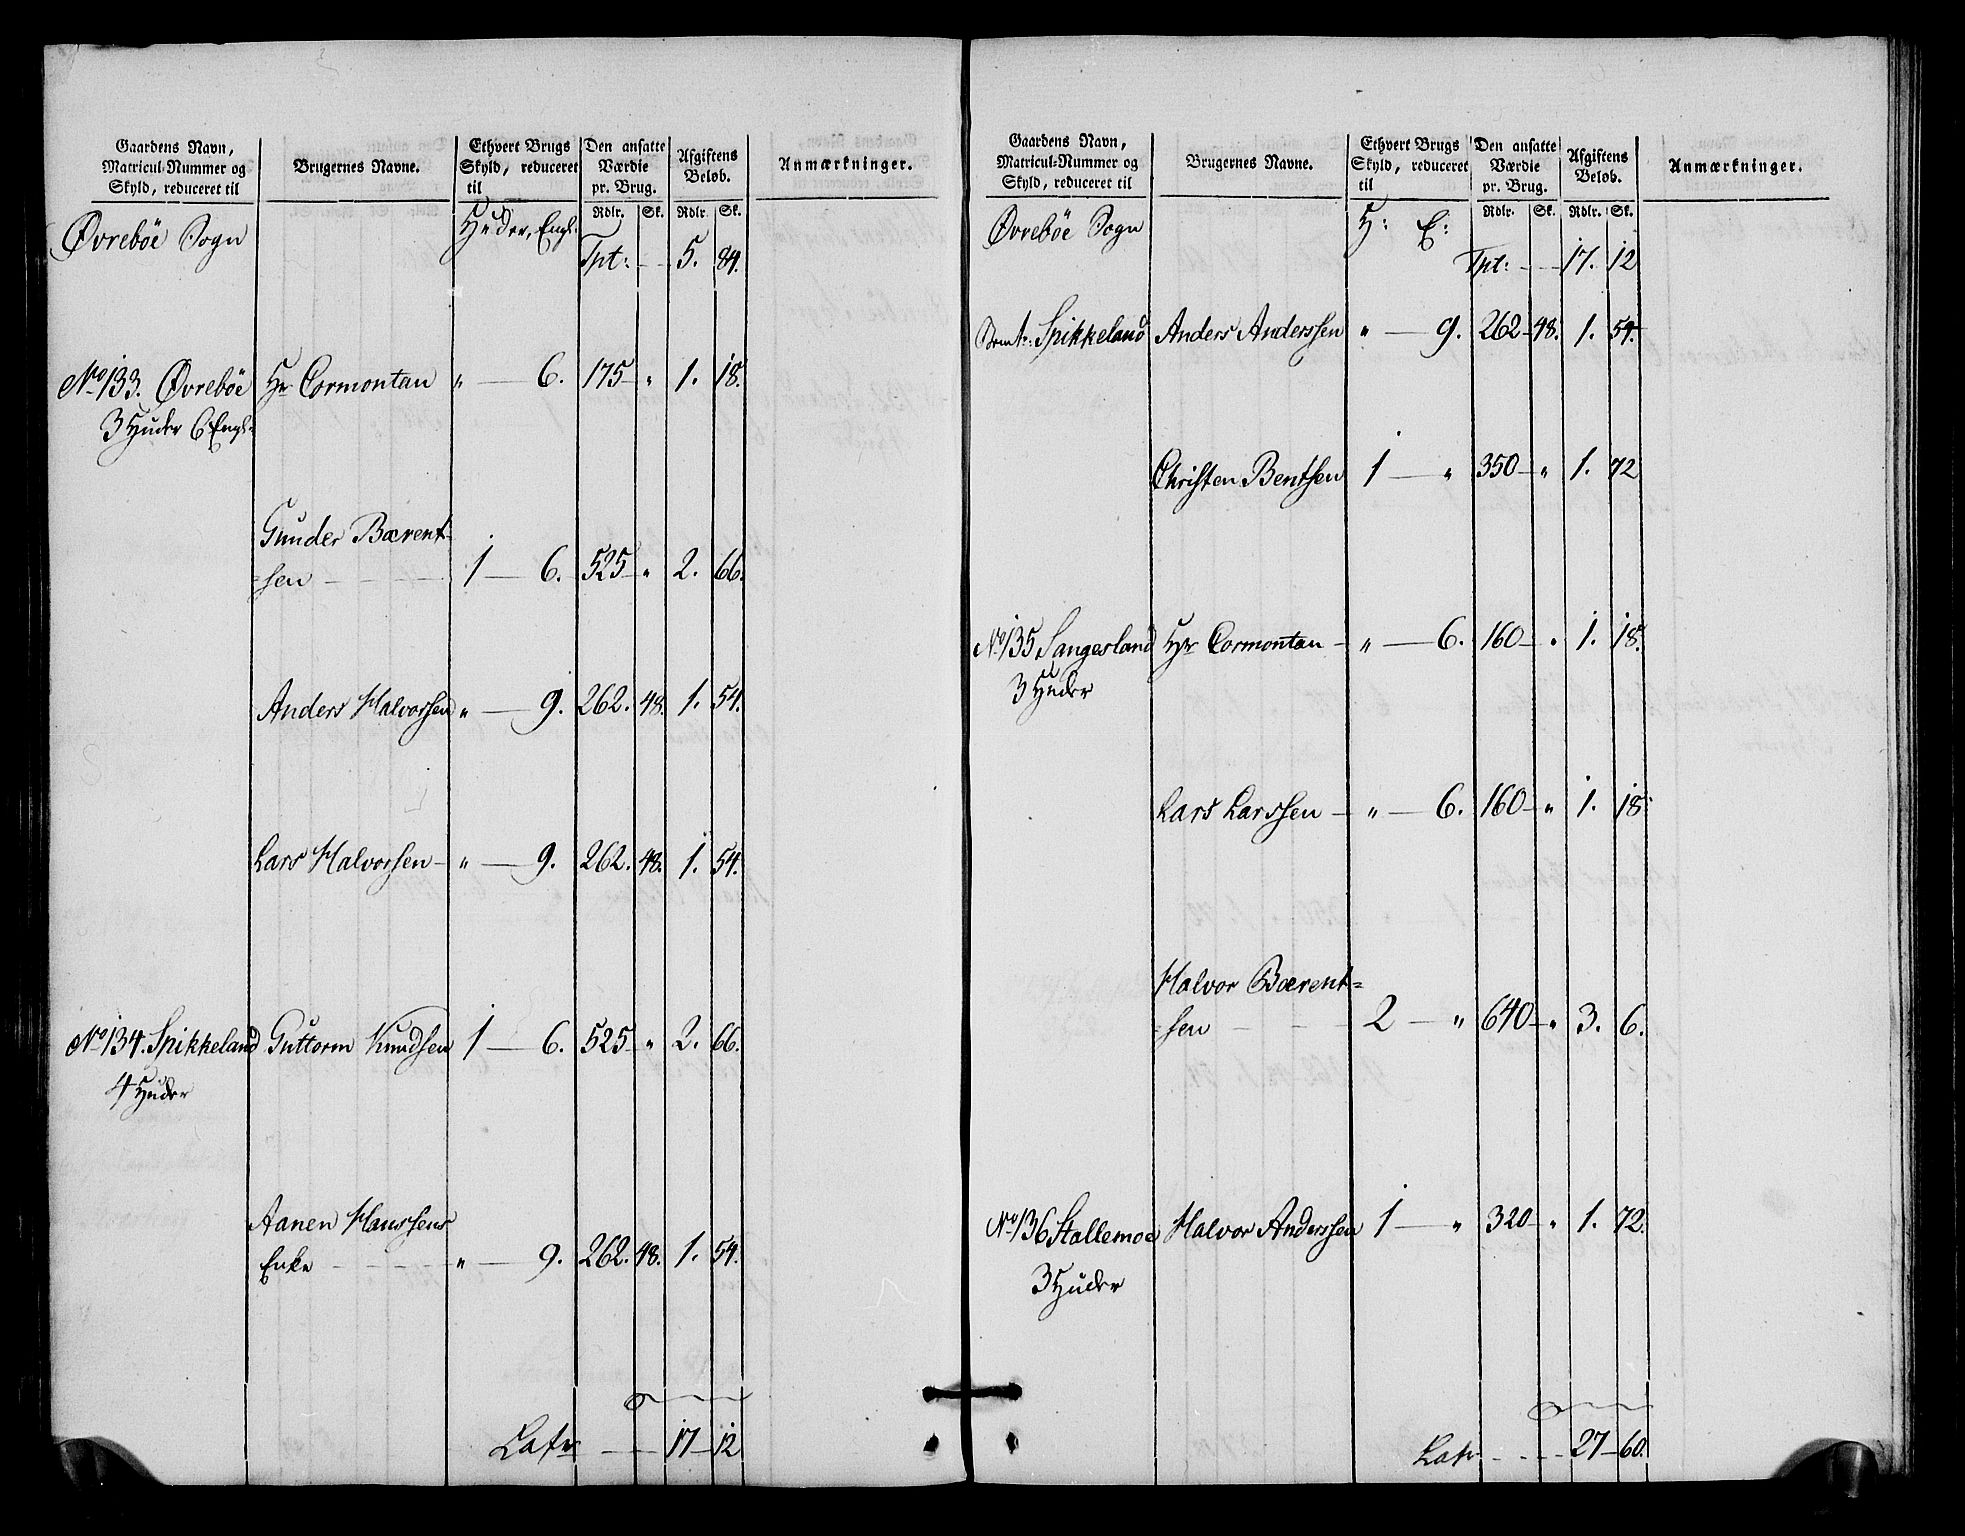 Gaardens Navn,
Matricul-Nummer og
Skyld, reduceret til
Brugernes Navne.
Ethvert Brugs
Skyld, reduceret
til
Den ansatte
Værdie
pr. Brug.
Afgiftens
Beløb.
Anmærkninger.
Rdlr. Sk. Rdlr. Sk.
Øvrebøe Sogn Huder, Engl:
Tpt: 5. 84.
No 133. Øvrebøe Hr Cormontan " — 6. 175 " 1. 18.
3 Huder 6 Engl:
Gunder Bærent-
=sen 1 — 6. 525 " 2. 66.
Anders Halvorsen " — 9. 262. 48. 1. 54.
Lars Halvorsen " — 9. 262. 48. 1. 54.
No 134. Spikkeland Guttorm Knudsen 1 — 6. 525 " 2. 66.
4 Huder
Aanen Hanssens
Enke " — 9. 262. 48. 1. 54.
Latr 17 — 12
Gaardens Navn,
Matricul-Nummer og
Skyld, reduceret til
Brugernes Navne.
Ethvert Brugs
Skyld, reduceret
til
Den ansatte
Værdie
pr. Brug.
Afgiftens
Beløb.
Anmærkninger.
Rdlr. Sk. Rdlr. Sk.
Øvrebøe Sogn H: E:
Tpt: 17. 12
Spikkeland Anders Anderssen " — 9. 262 48. 1. 54.
Christen Bentsen 1 — " 350 " 1. 72
No 135 Sangesland Hr Cormontan " — 6. 160 " 1. 18.
3 Huder
Lars Larssen " — 6. 160 " 1. 18
Halvor Bærent=
=sen 2 — " 640 " 3. 6.
No 136 Stallemoe Halvor Anderssen 1 — " 320 " 1. 72.
3 Huder
Latr 27 — 60.